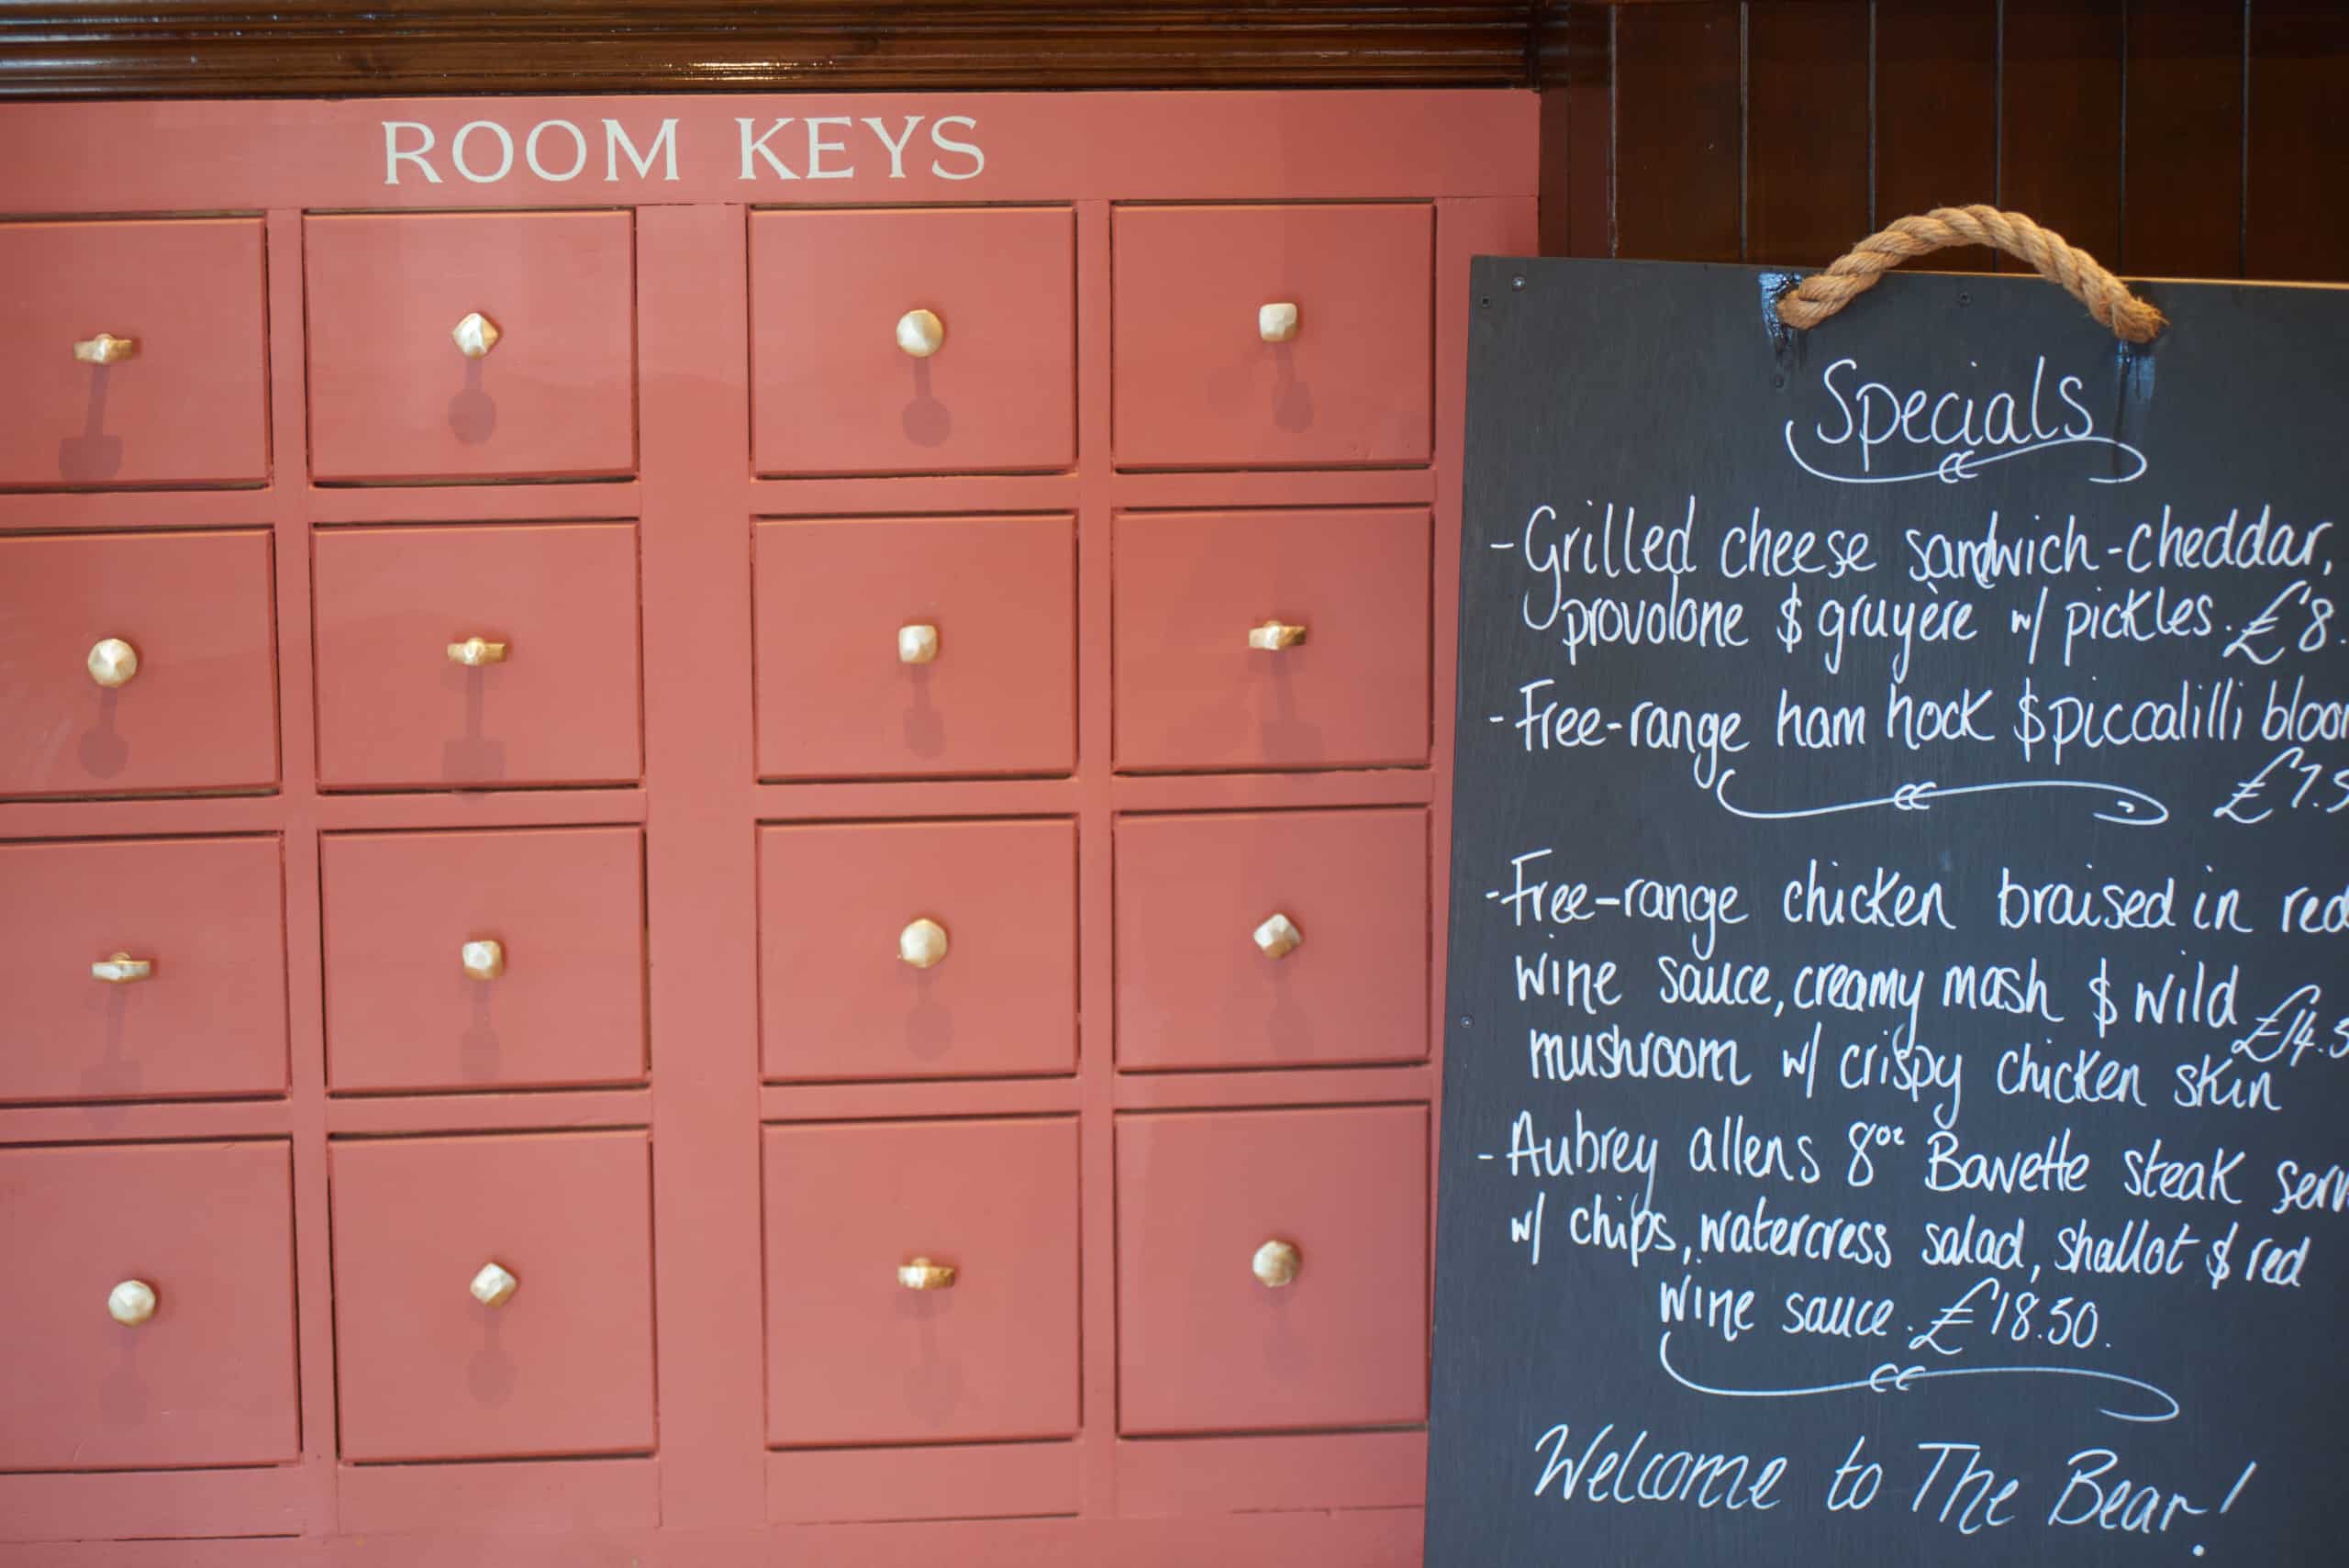 ROOM KEYS
Specials
- Grilled cheese sandwich - cheddar,
provolone & gruyère w/ pickles. £8.
- Free-range ham hock & piccalilli
£7.5
- Free-range chicken braised in red
wine sauce, creamy mash & wild
£14.5
mushroom w/ crispy chicken skin
- Aubrey allens 8oz Bavette steak
w/ chips, watercress salad, shallot & red
wine sauce. £18.50.
Welcome to The Bear!